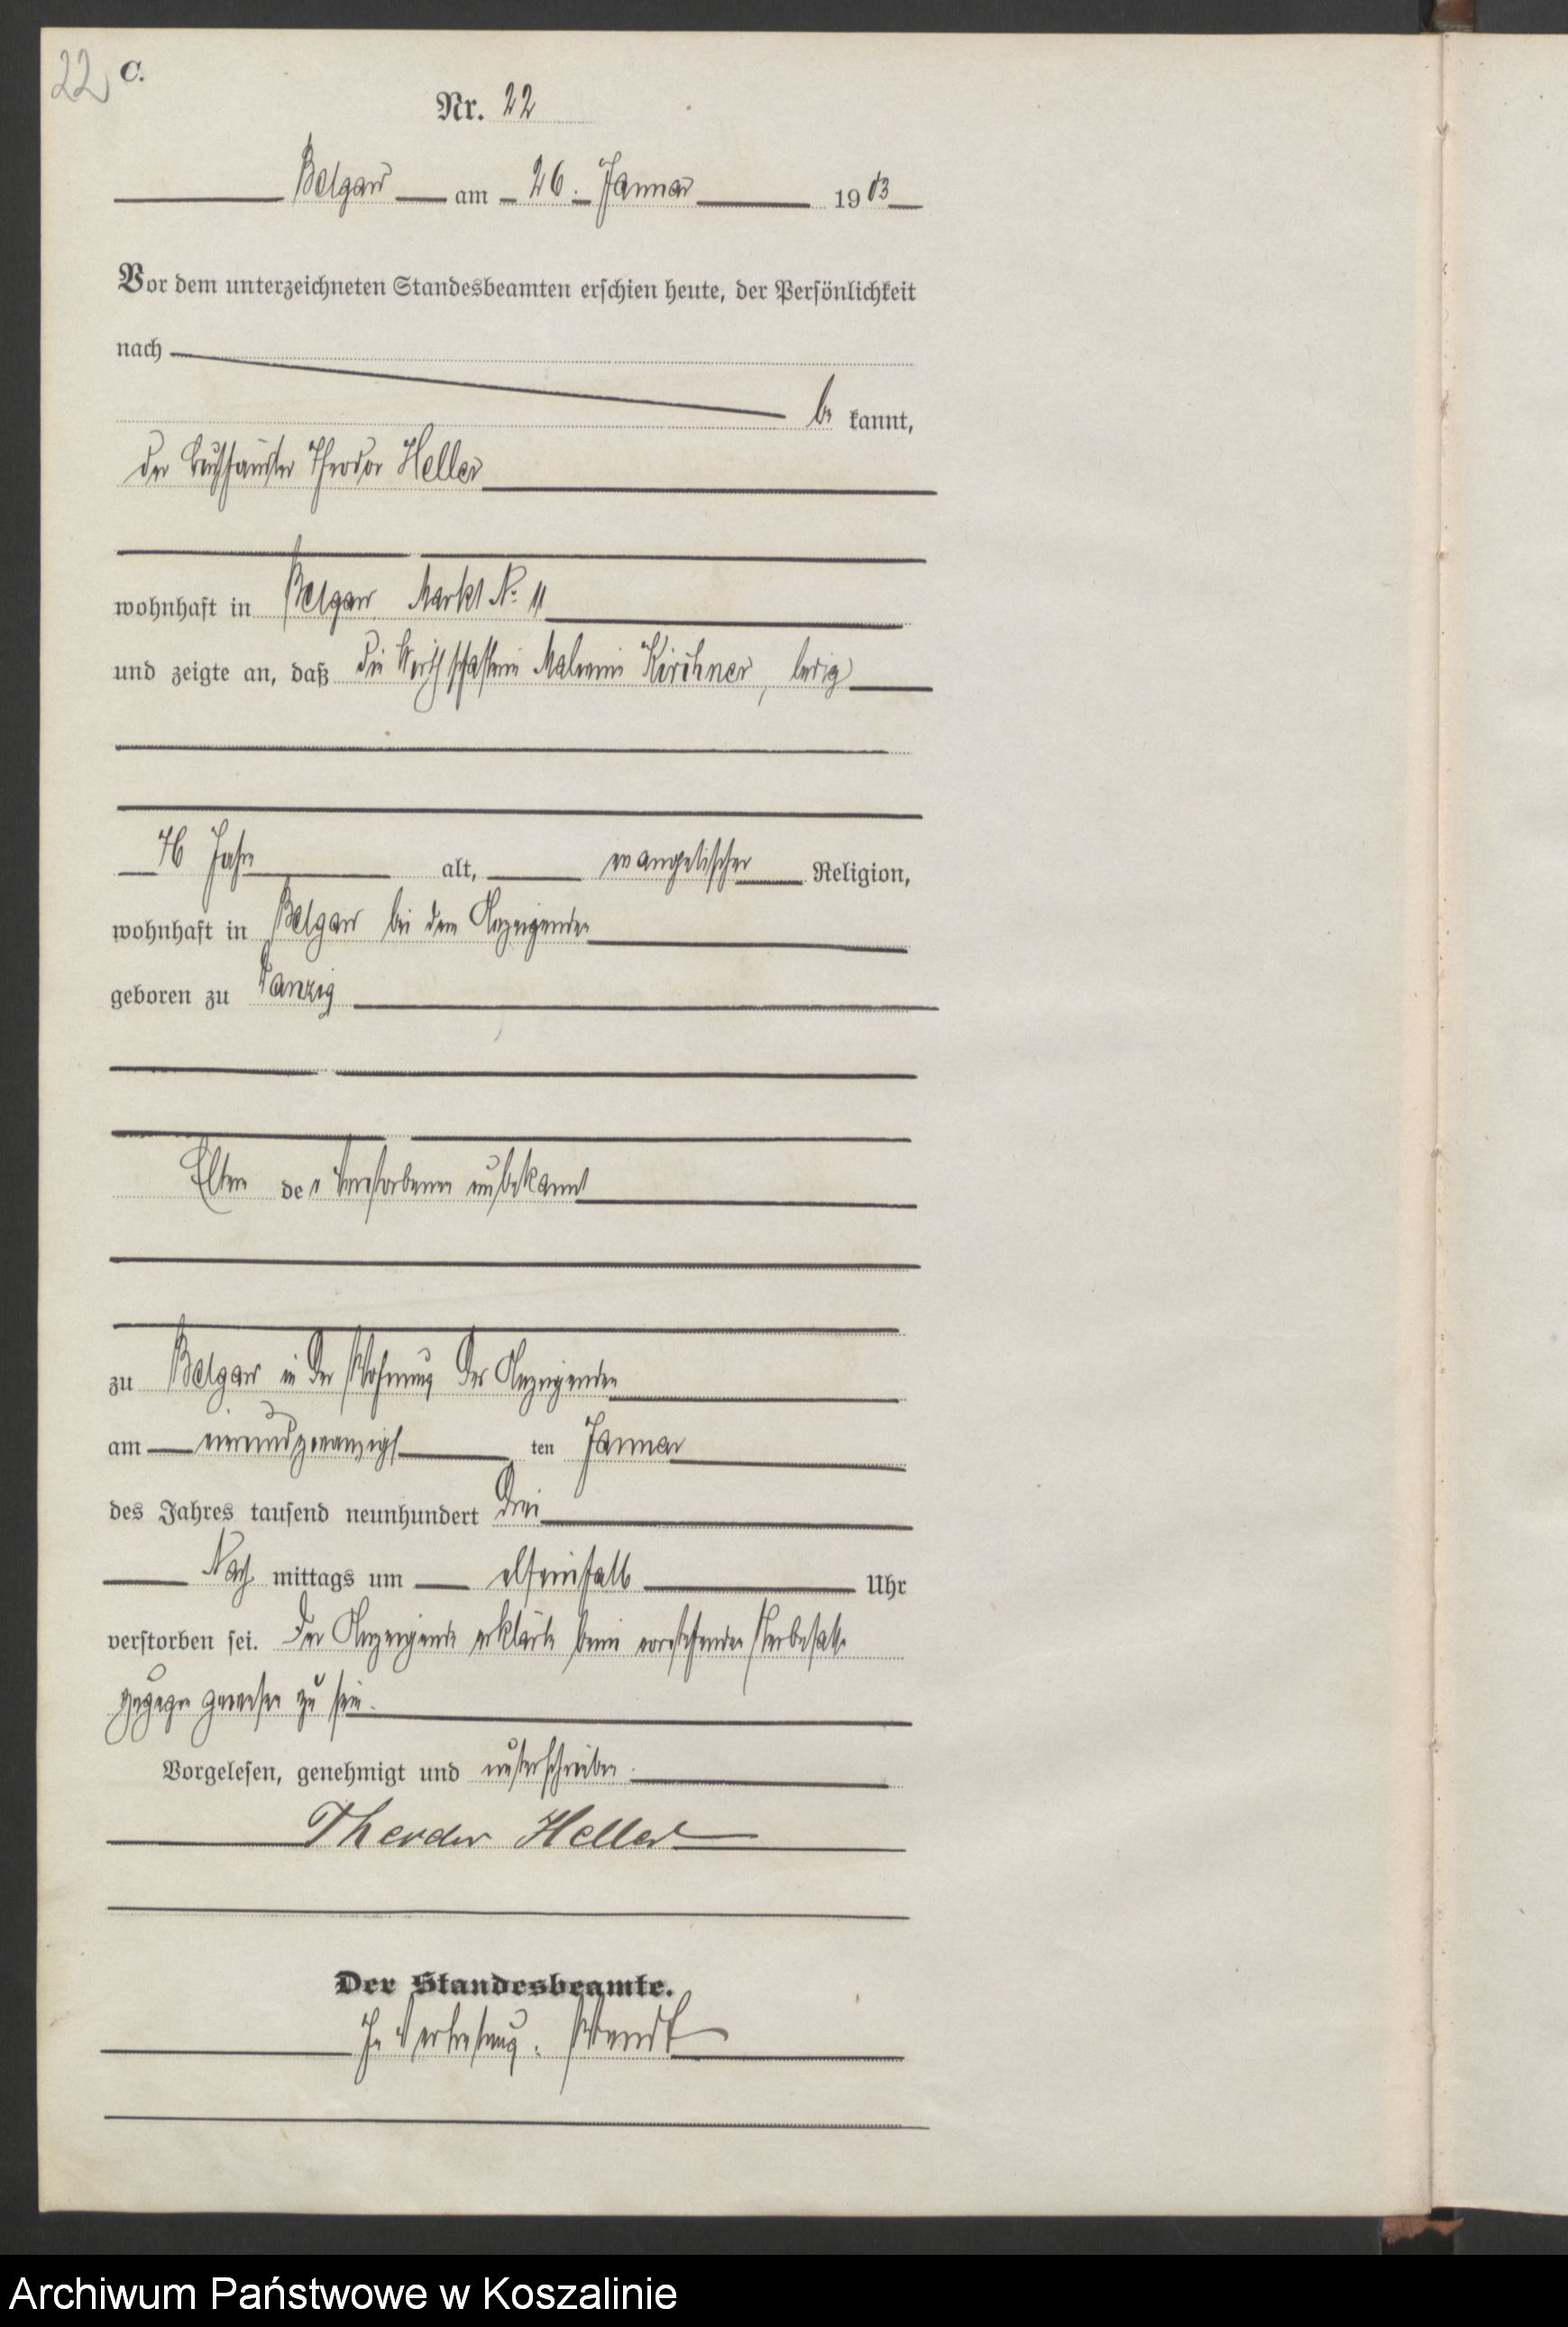 22 C.
Nr. 22
Belgard am 26. Januar 1903
Vor dem unterzeichneten Standesbeamten erschien heute, der Persönlichkeit
nach
be kannt,
der Buchhändler Theodor Heller
wohnhaft in Belgard Markt No 11
und zeigte an, daß die Wirthschafterin Malwine Kirchner, ledig
76 Jahre alt, evangelischer Religion,
wohnhaft in Belgard bei dem Anzeigenden
geboren zu Danzig
Eltern der Verstorbenen unbekannt
zu Belgard in der Wohnung des Anzeigenden
am vierundzwanzigst ten Januar
des Jahres tausend neunhundert drei
Nach mittags um elfeinhalb Uhr
verstorben sei. Der Anzeigende erklärte beim vorstehenden Sterbefalle
zugegen gewesen zu sein.
Vorgelesen, genehmigt und unterschrieben.
Theodor Heller
Der Standesbeamte.
In Vertretung. Wendt
Archiwum Państwowe w Koszalinie